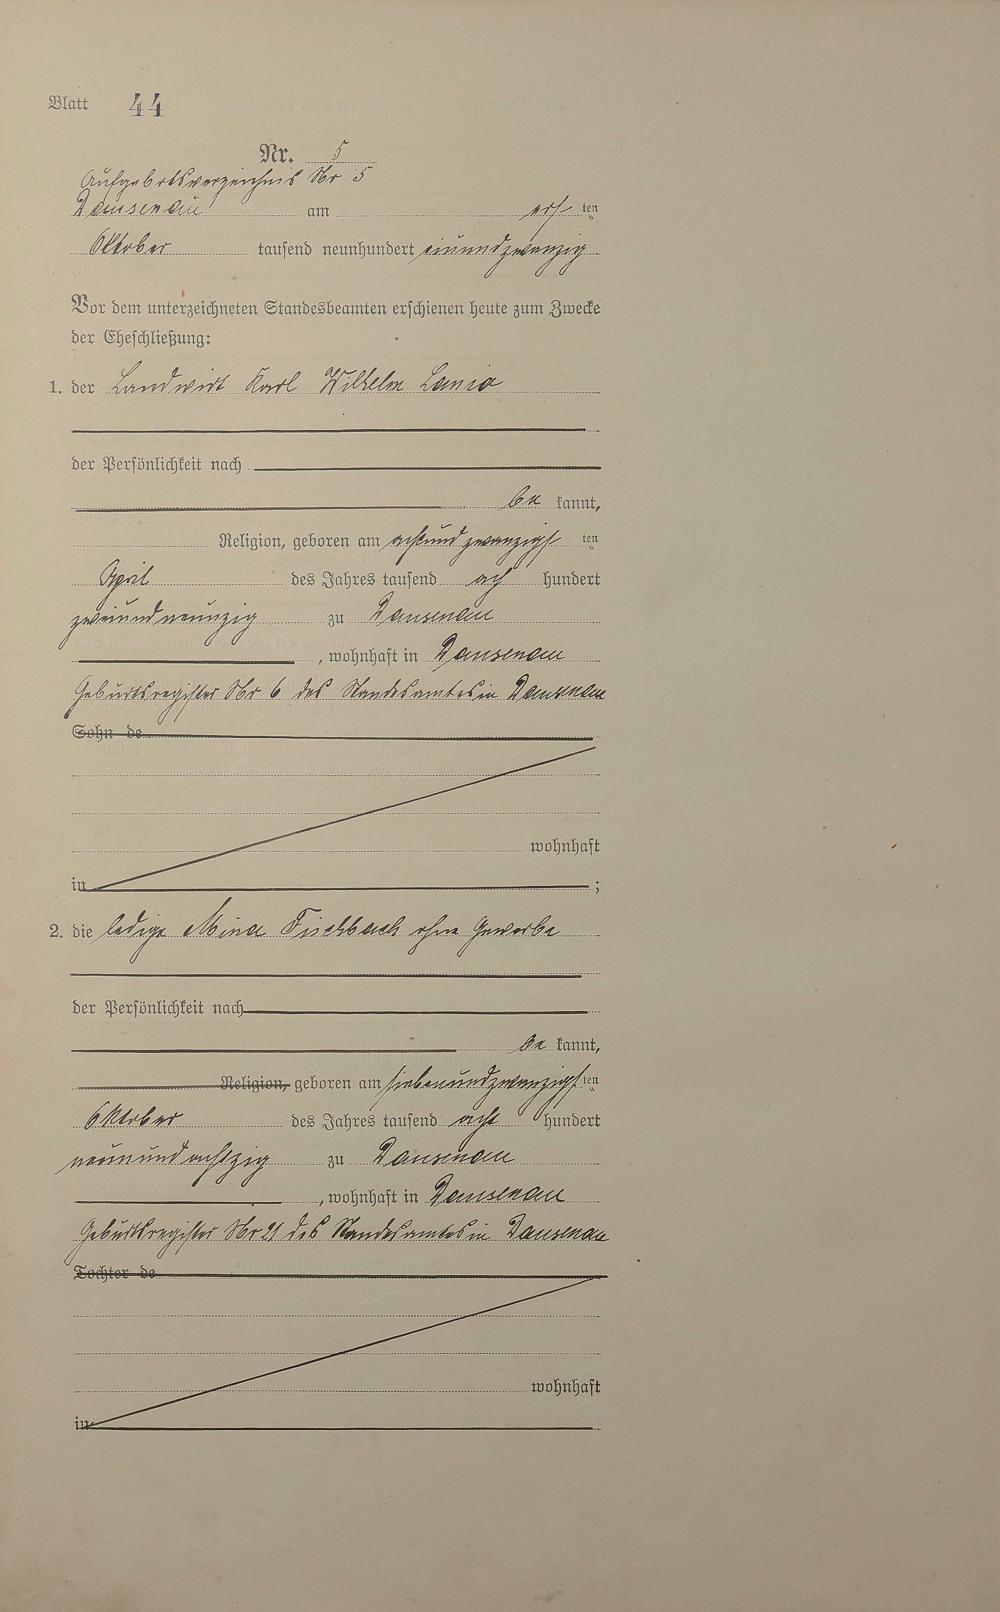 Blatt 44
Nr. 5
Aufgebotsverzeichnis Nr 5
Dausenau am ers ten
Oktober tausend neunhundert einundzwanzig
Vor dem unterzeichneten Standesbeamten erschienen heute zum Zwecke
der Eheschließung:
1. der Landwirt Karl Wilhelm
der Persönlichkeit nach
be kannt,
Religion, geboren am achtundzwanzigs ten
April des Jahres tausend ach hundert
zweiundneunzig zu Dausenau
, wohnhaft in Dausenau
Geburtsregister Nr 6 des Standesamtes in Dausenau
Sohn de
wohnhaft
in ;
2. die ledige Mina Fischbach ohne Gewerbe
der Persönlichkeit nach
be kannt,
Religion, geboren am siebenundzwanzigs ten
Oktober des Jahres tausend acht hundert
neunundachtzig zu Dausenau
, wohnhaft in Dausenau
Geburtsregister Nr 21 des Standesamtes in Dausenau
Tochter de
wohnhaft
in